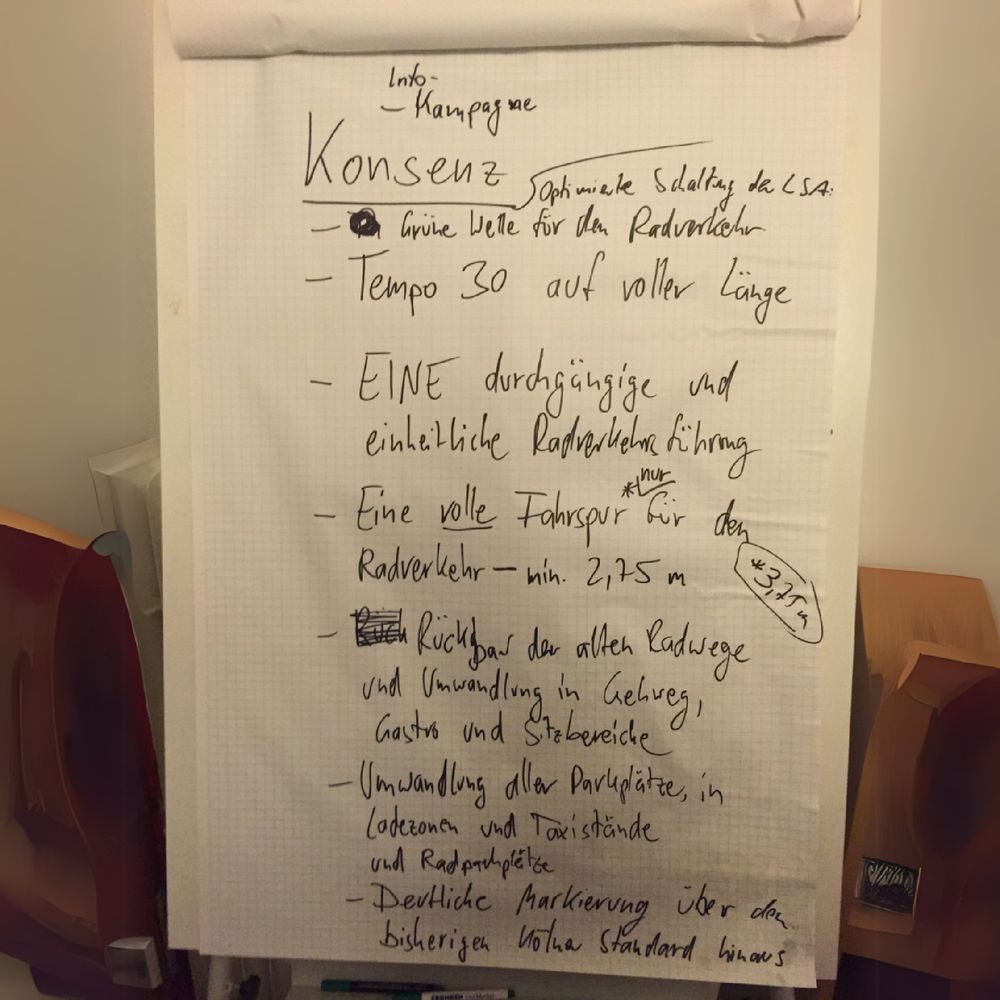 Info-
– Kampagne
Konsenz
Optimierte Schaltung der LSA.
– Grüne Welle für den Radverkehr
– Tempo 30 auf voller Länge
– EINE durchgängige und
einheitliche Radverkehrsführung
*nur
– Eine volle Fahrspur für den
Radverkehr – min. 2,75 m
*3,75 m
– Rückbau der alten Radwege
und Umwandlung in Gehweg,
Gastro und Sitzbereiche
– Umwandlung aller Parkplätze, in
Ladezonen und Taxistände
und Radparkplätze
– Deutliche Markierung über den
bisherigen Kölner Standard hinaus